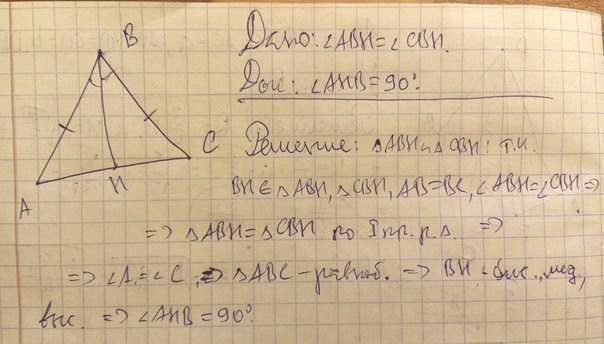 B
Дано: ∠ABH = ∠CBH.
Док: ∠AHB = 90°.
C
A
H
Решение: △ABH и △CBH: т.к.
BH ∈ △ABH, △CBH, AB=BC, ∠ABH=∠CBH ⇒
⇒ △ABH = △CBH по I пр. р. △. ⇒
⇒ ∠A = ∠C, ⇒ △ABC – равноб. ⇒ BH – бис., мед.,
выс. ⇒ ∠AHB = 90°.